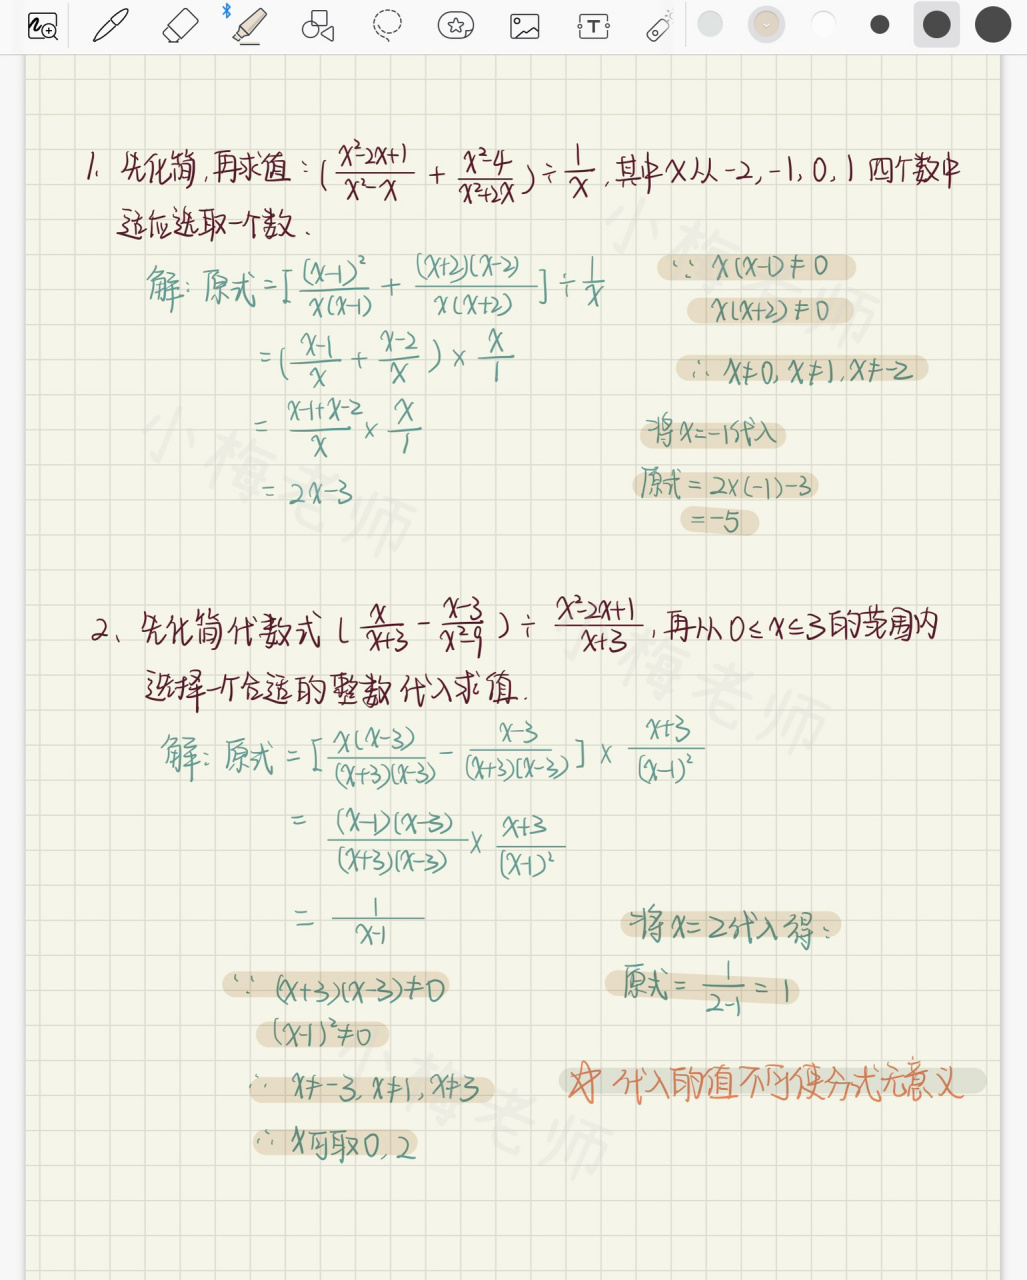 1、先化简,再求值:(x²-2x+1/x²-x + x²-4/x²+2x)÷1/x,其中x从-2,-1,0,1四个数中
适应选取一个数.
解:原式=[(x-1)²/x(x-1) + (x+2)(x-2)/x(x+2)]÷1/x
=(x-1/x + x-2/x)×x/1
=x-1+x-2/x × x/1
=2x-3
∵ x(x-1)≠0
x(x+2)≠0
∴ x≠0,x≠1,x≠-2
将x=-1代入
原式=2×(-1)-3
=-5
2、先化简代数式(x/x+3 - x-3/x²-9)÷x²-2x+1/x+3,再从0≤x≤3的范围内
选择一个合适的整数代入求值.
解:原式=[x(x-3)/(x+3)(x-3) - x-3/(x+3)(x-3)]×x+3/(x-1)²
=(x-1)(x-3)/(x+3)(x-3)×x+3/(x-1)²
=1/x-1
∵ (x+3)(x-3)≠0
(x-1)²≠0
∴ x≠-3,x≠1,x≠3
∴ x可取0,2
将x=2代入得:
原式=1/2-1=1
☆代入的值不可使分式无意义
小梅老师
小梅老师
小梅老师
小梅老师
T